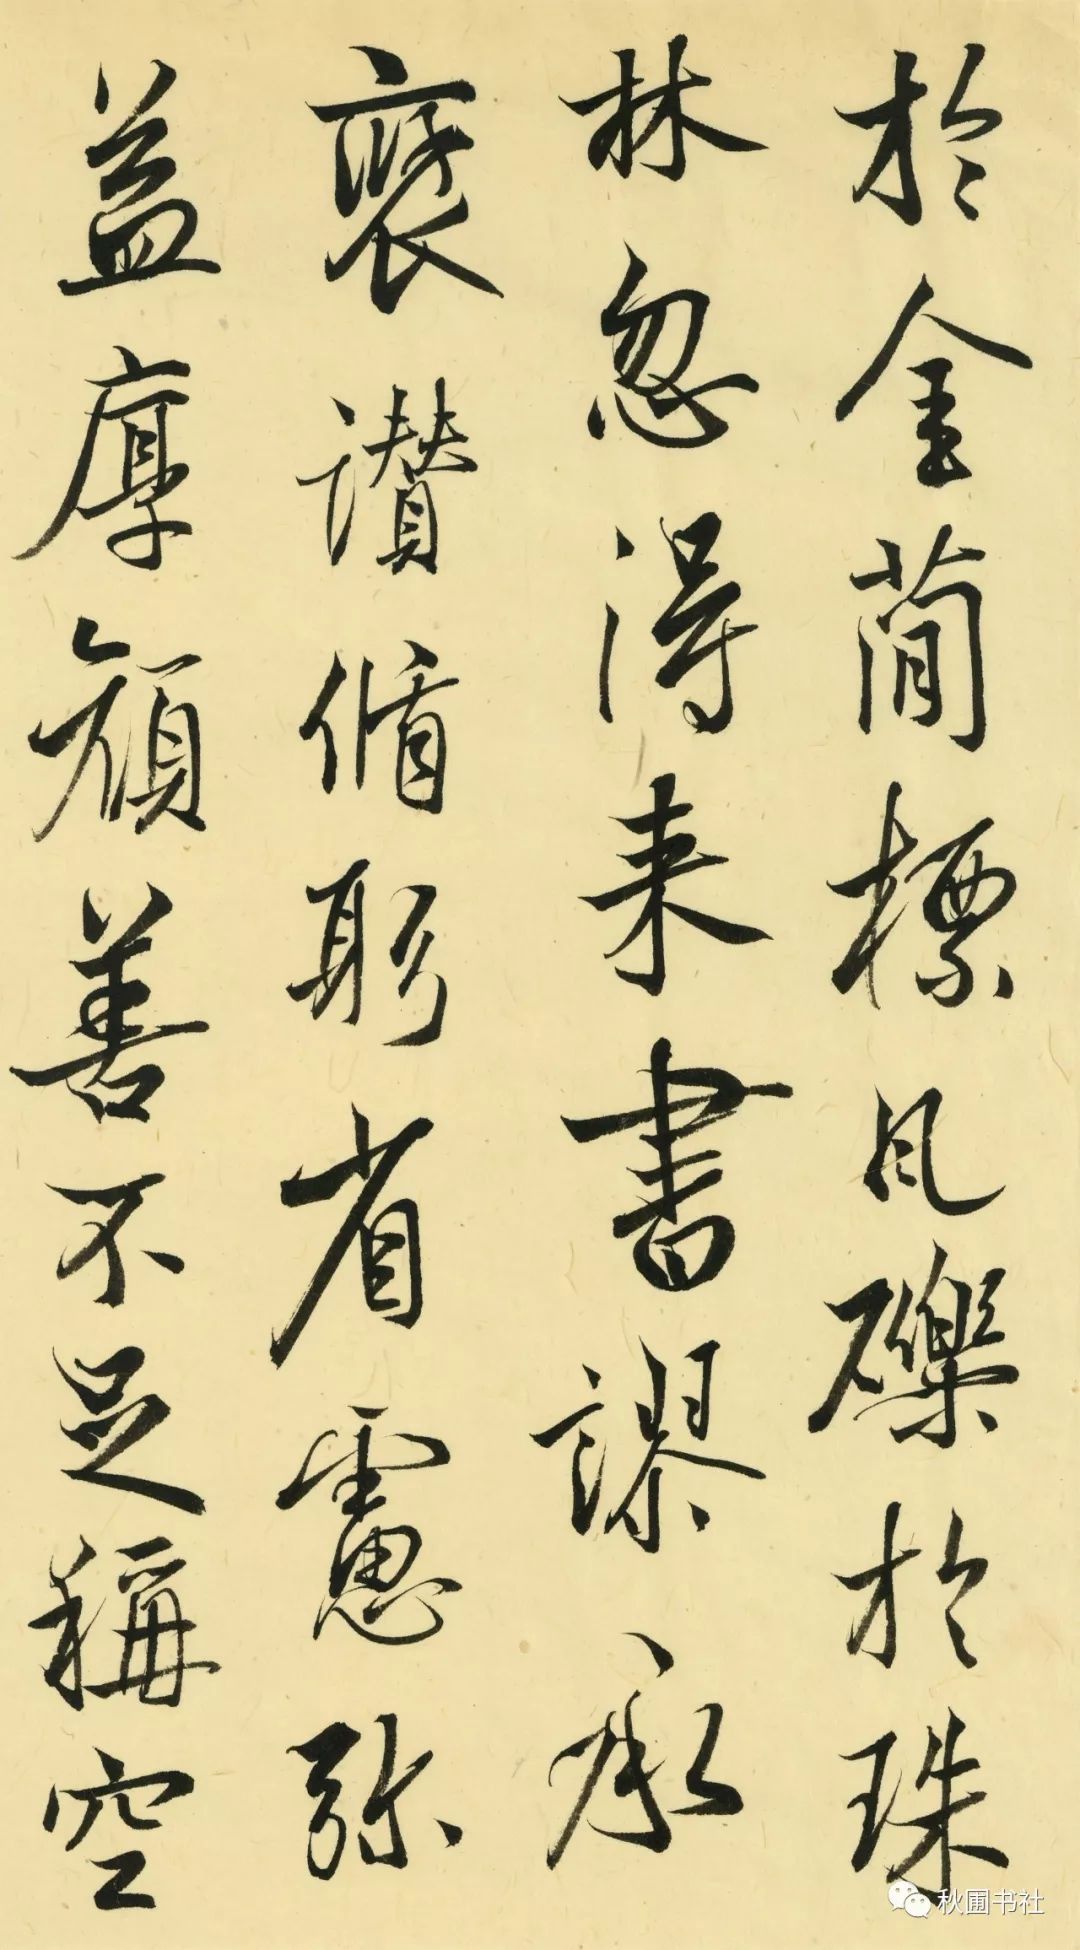 於金簡標風礫於珠
林忽得来書謬承
褒讃循躬省慮弥
益厚顔善不足稱空
秋圃书社